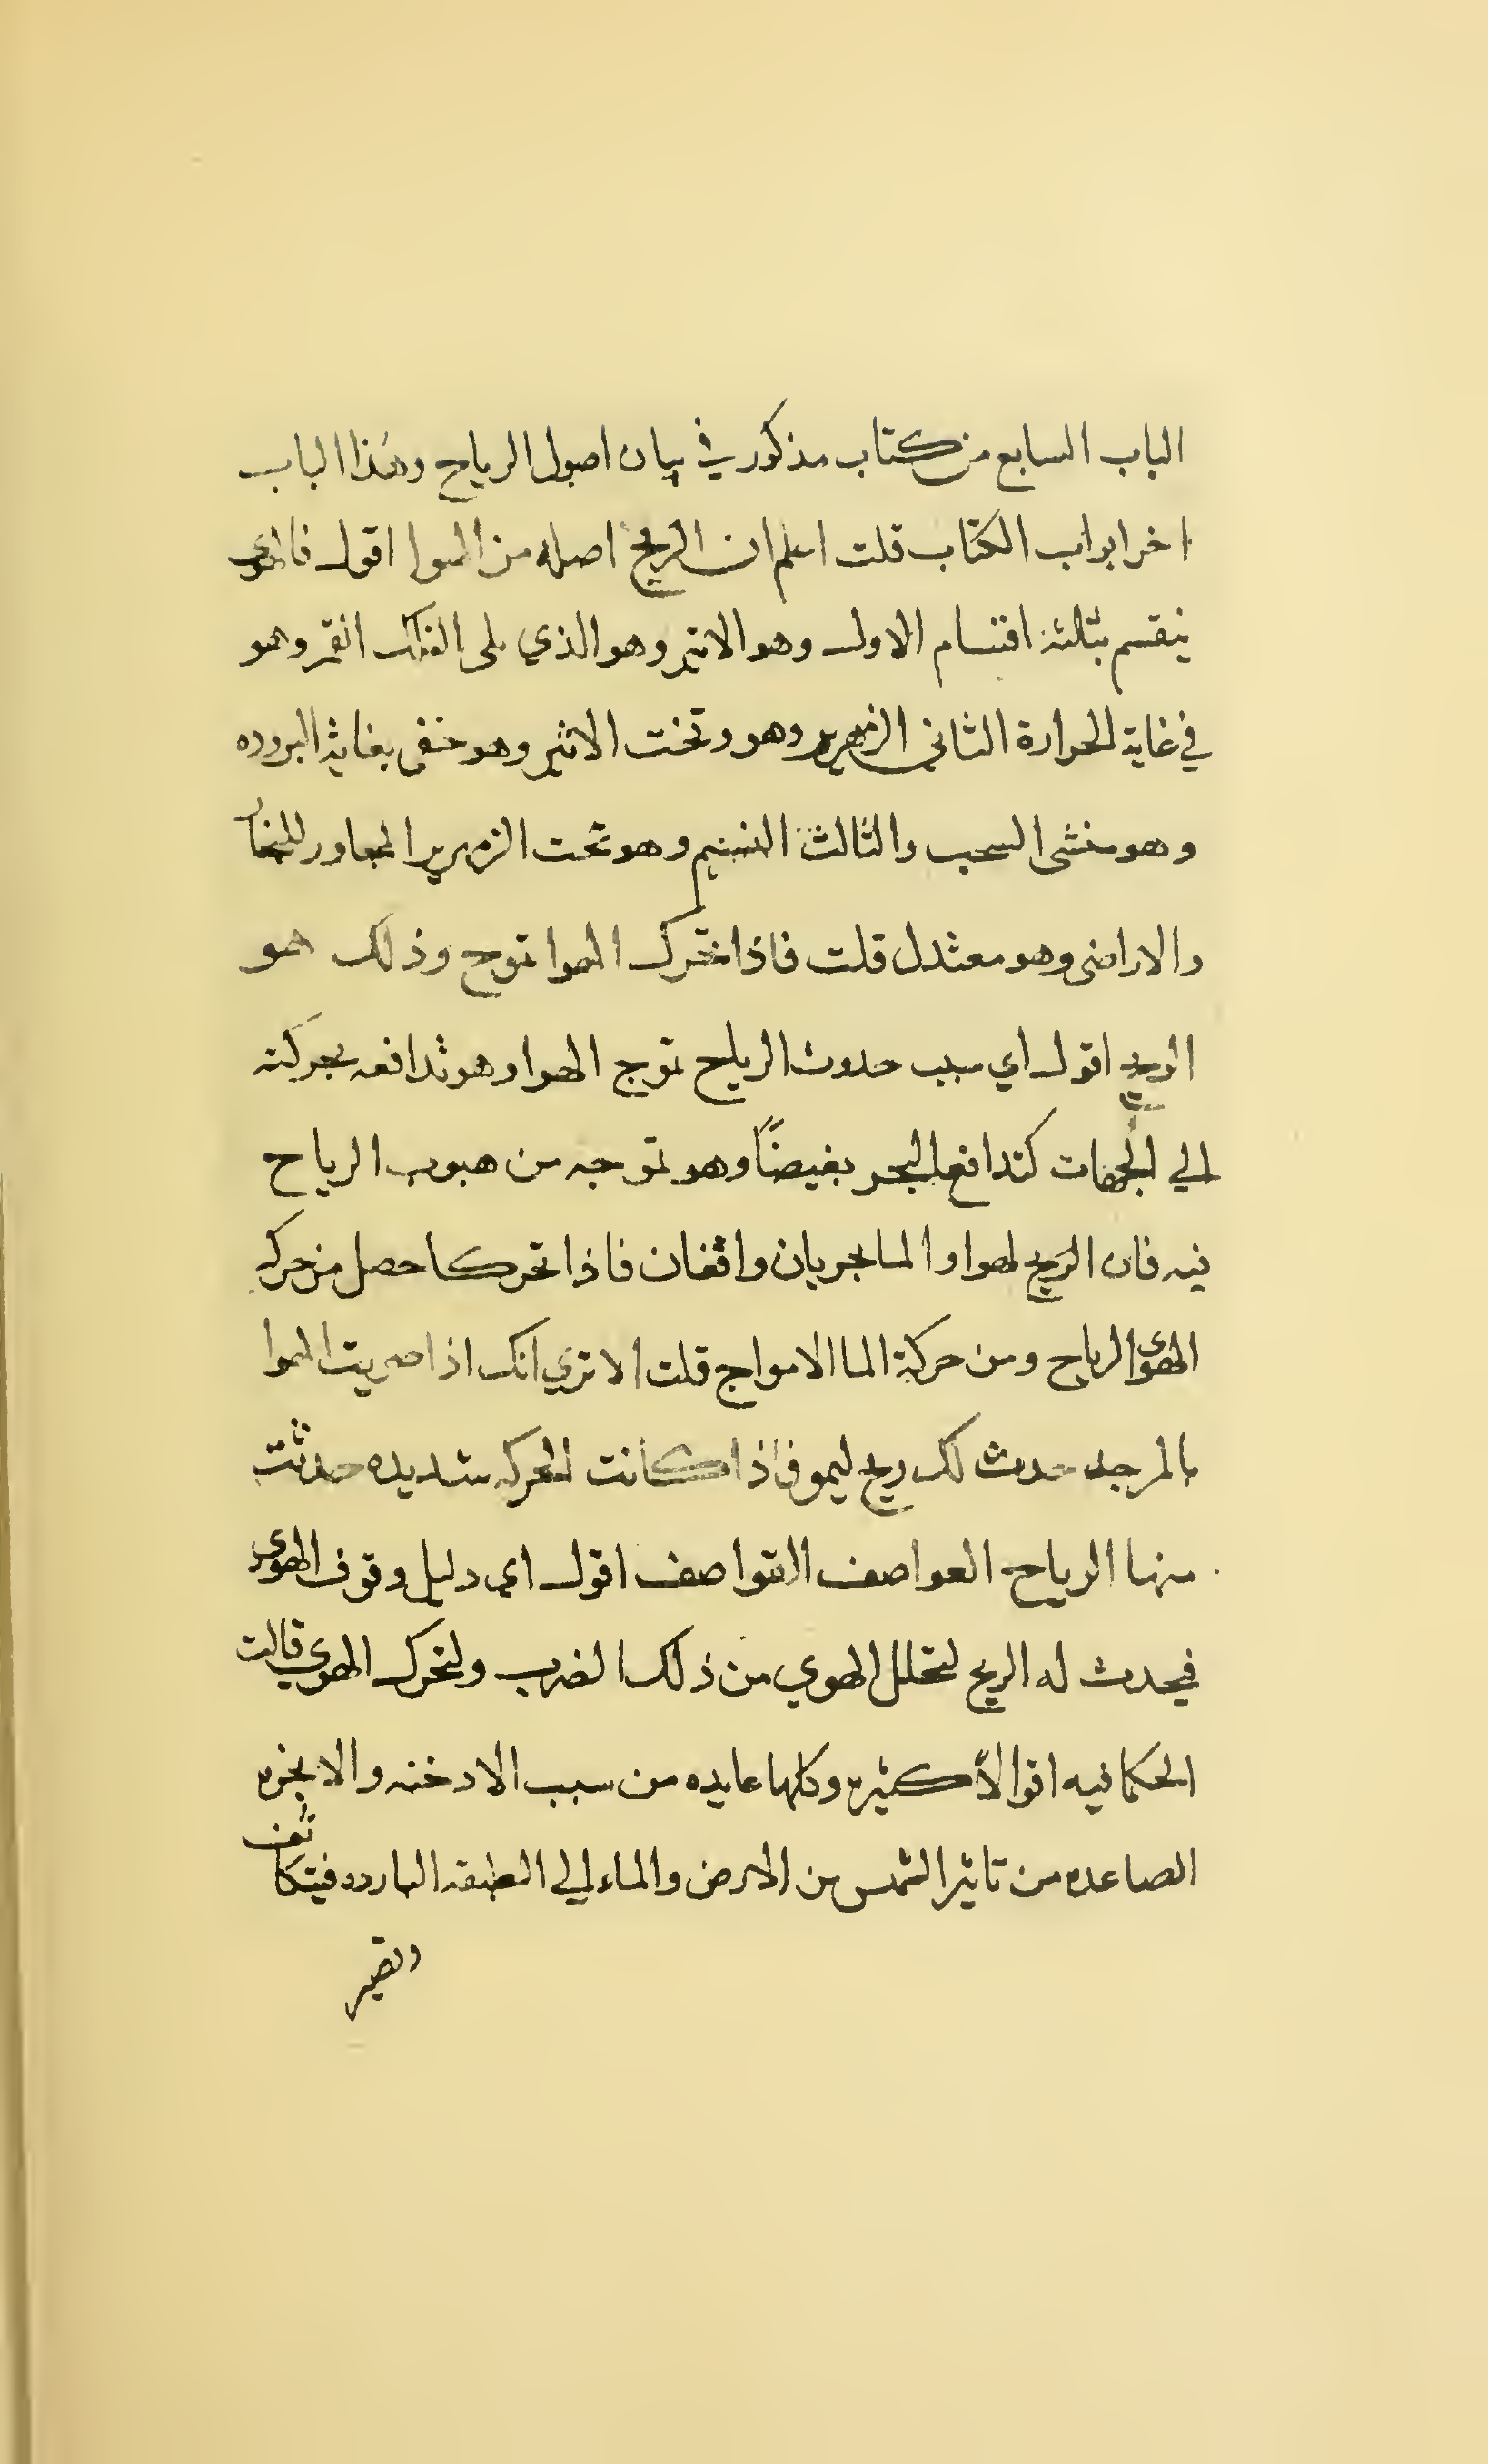 الباب السابع من كتاب مذكور في بيان اصول الرياح وهذا الباب
اخر ابواب الكتاب قلت اعلم ان الريح اصله من الهوا اقول فالهوي
ينقسم بثلثة اقسام الاول وهو الاثير وهو الذي يلى الفلك القمر وهو
في غاية الحرارة الثاني الزمهرير وهو وتخت الاثير وهو خفى بغاية البروده
وهو منشى السحب والثالث النسيم وهو تحت الزمهرير المجاور للبخار
والاراضى وهو معتدل قلت فاذا تحرك الهوا تموج وذلك هو
الريح اقول اي سبب حدوث الرياح تموج الهوا وهو تدافعه بحركته
الي الجهات كتدافع البحر بغيضاً وهو تموجه من هبوب الرياح
فيه فان الريح لهوا والما بجريان واقفان فاذا تحركا حصل من حركه
الهوى الرياح ومن حركة الما الامواج قلت الا تري انك اذا ضربت الهوا
بالمرجد حدث لك ريح ليمو فاذا كانت الحركه شديده حدثت
منها الرياح العواصف القواصف اقول اي دليل وقوف الهوي
فيحدث له الريح لتخلل الهوي من ذلك الضرب ولتحرك الهوي قالت
الحكما فيه اقوالاً كثيره وكلها عايده من سبب الادخنه والابخره
الصاعده من تاثير الشمس من الارض والماء الي الطبقه البارده فيتكاثف
وتصير